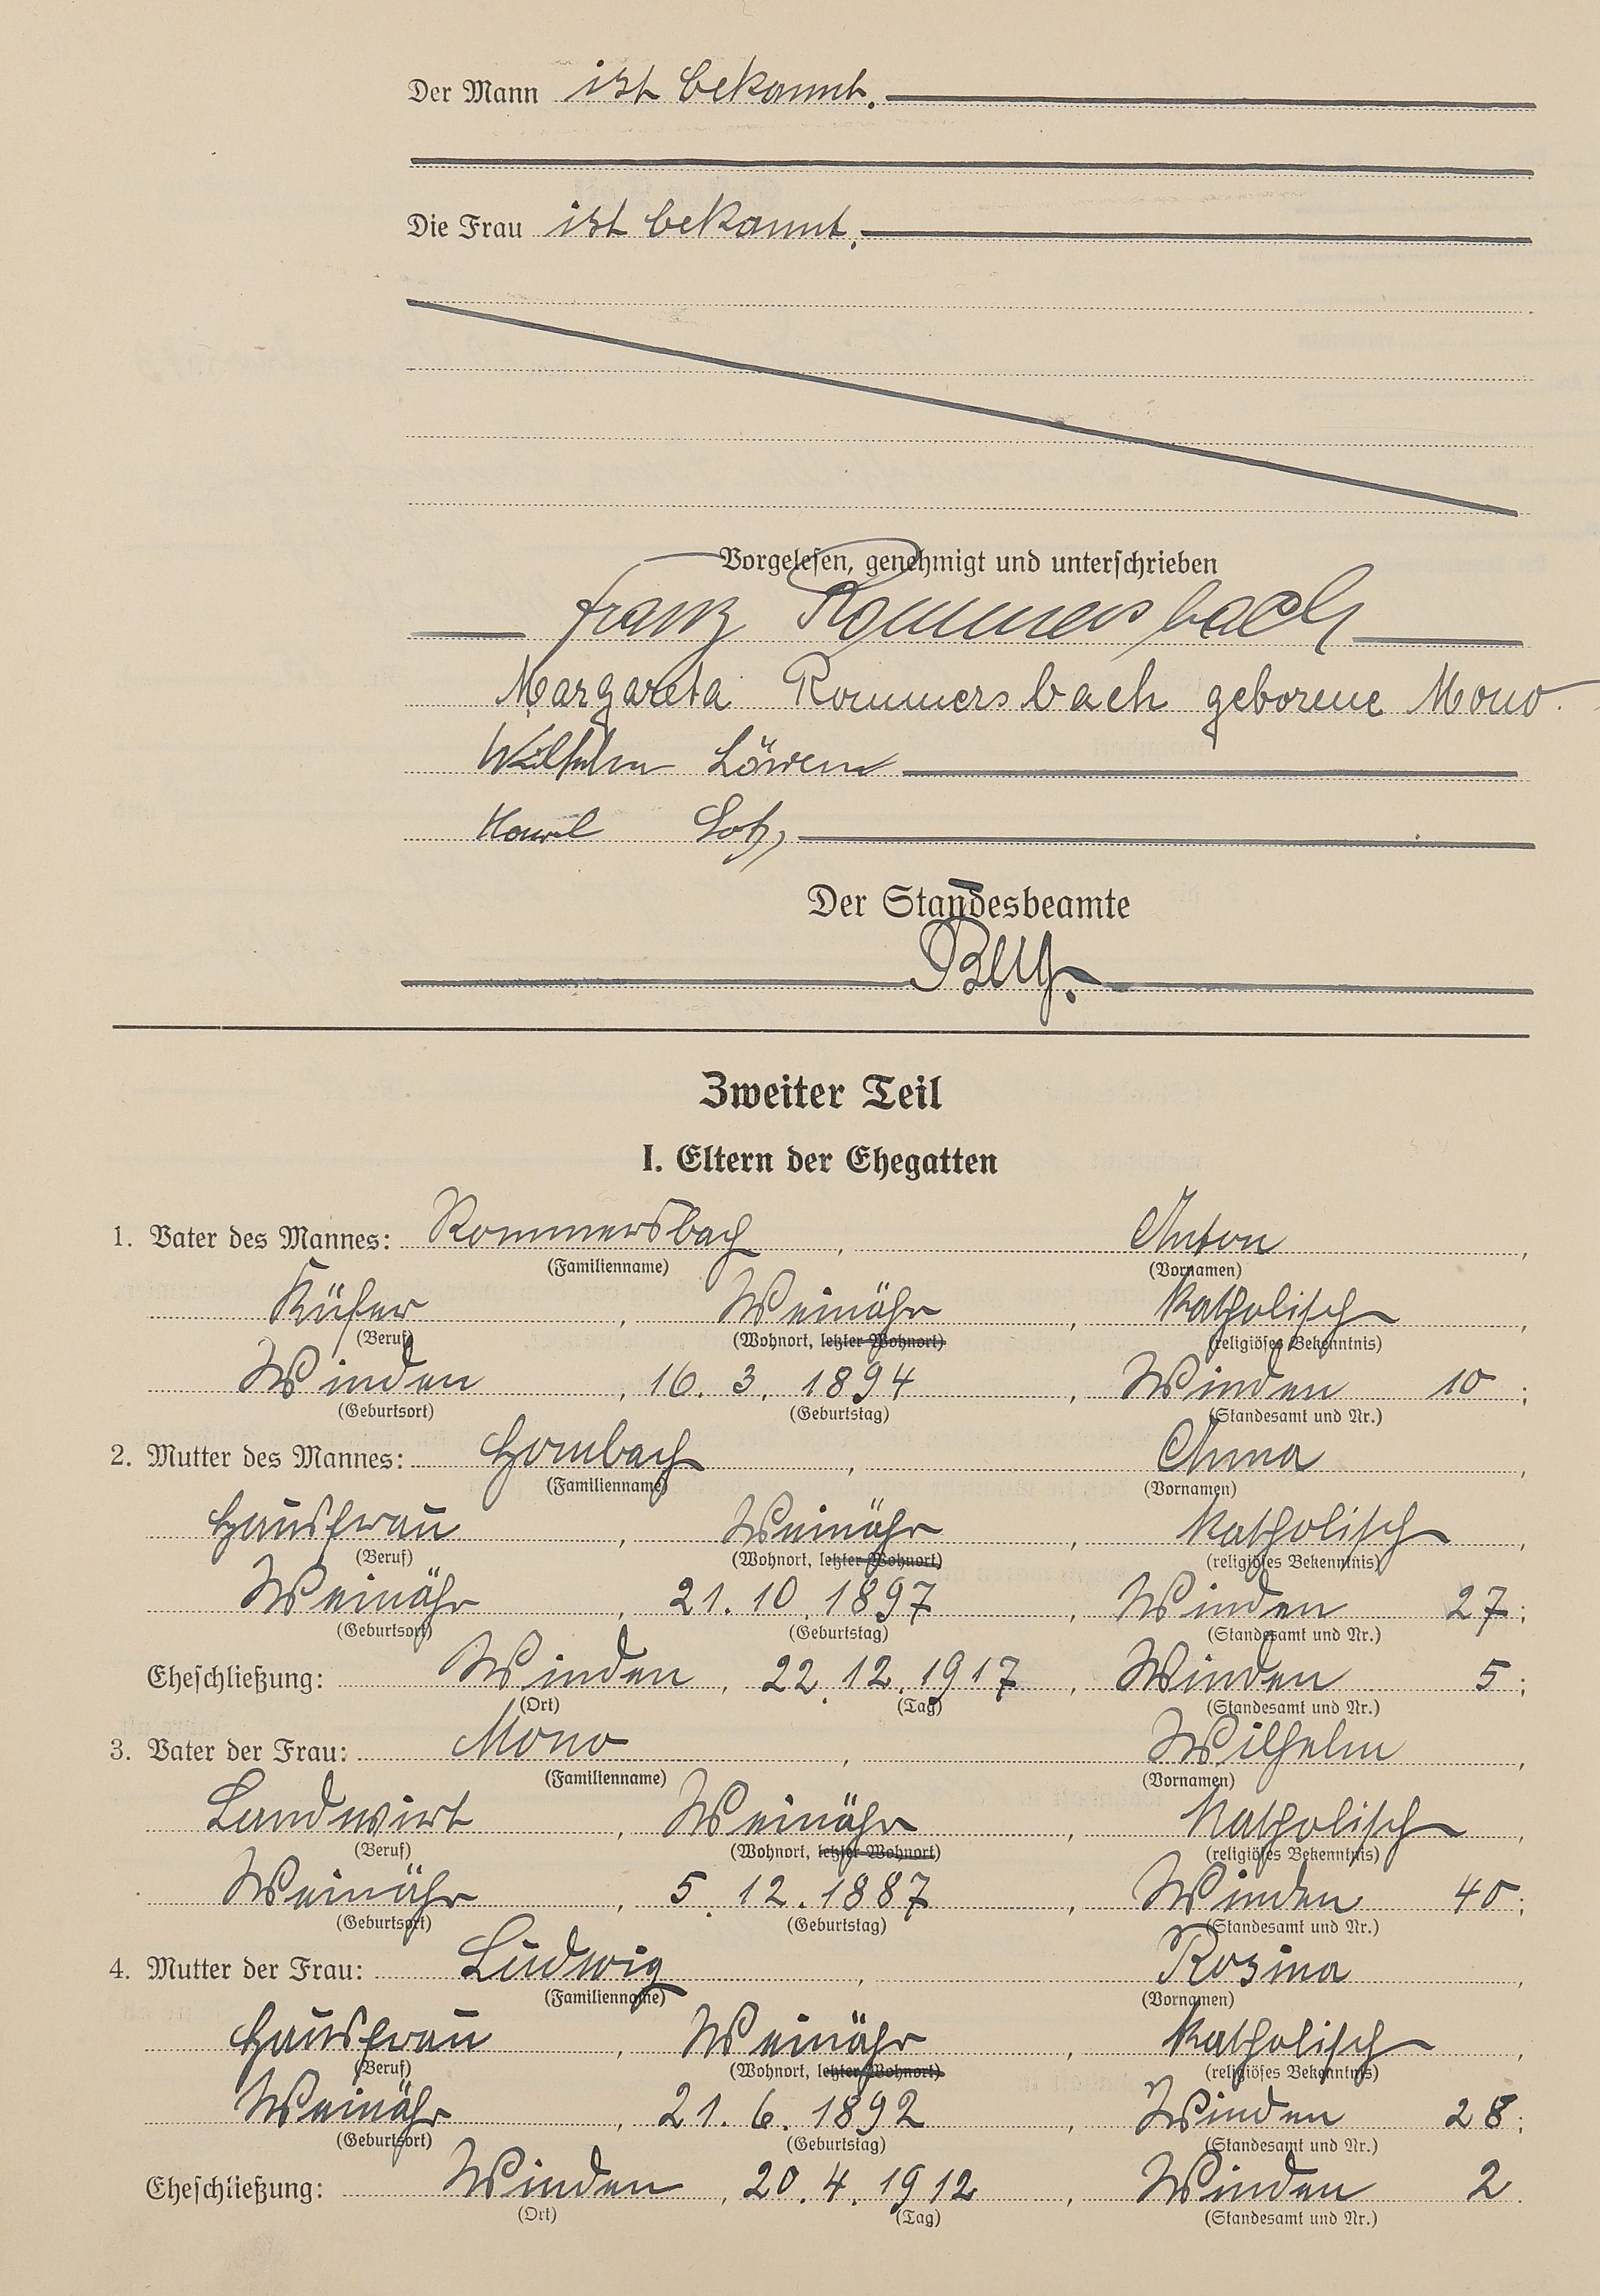 Der Mann ist bekannt.
Die Frau ist bekannt.
Vorgelesen, genehmigt und unterschrieben
Franz Rommersbach
Margareta Rommersbach geborene Mono.
Wilhelm Löwen
Lotz
Der Standesbeamte
Zweiter Teil
I. Eltern der Ehegatten
1. Vater des Mannes: Rommersbach, Anton,
(Familienname) (Vornamen)
Küfer, Weinähr, katholisch,
(Beruf) (Wohnort, letzter Wohnort) (religiöses Bekenntnis)
Winden, 16. 3. 1894, Winden 10;
(Geburtsort) (Geburtstag) (Standesamt und Nr.)
2. Mutter des Mannes: Hombach, Anna,
(Familienname) (Vornamen)
Hausfrau, Weinähr, katholisch,
(Beruf) (Wohnort, letzter Wohnort) (religiöses Bekenntnis)
Weinähr, 21. 10. 1897, Winden 27;
(Geburtsort) (Geburtstag) (Standesamt und Nr.)
Eheschließung: Winden, 22. 12. 1917, Winden 5;
(Ort) (Tag) (Standesamt und Nr.)
3. Vater der Frau: Mono, Wilhelm,
(Familienname) (Vornamen)
Landwirt, Weinähr, katholisch,
(Beruf) (Wohnort, letzter Wohnort) (religiöses Bekenntnis)
Weinähr, 5. 12. 1887, Winden 40;
(Geburtsort) (Geburtstag) (Standesamt und Nr.)
4. Mutter der Frau: Ludwig, Rosina,
(Familienname) (Vornamen)
Hausfrau, Weinähr, katholisch,
(Beruf) (Wohnort, letzter Wohnort) (religiöses Bekenntnis)
Weinähr, 21. 6. 1892, Winden 28;
(Geburtsort) (Geburtstag) (Standesamt und Nr.)
Eheschließung: Winden, 20. 4. 1912, Winden 2.
(Ort) (Tag) (Standesamt und Nr.)